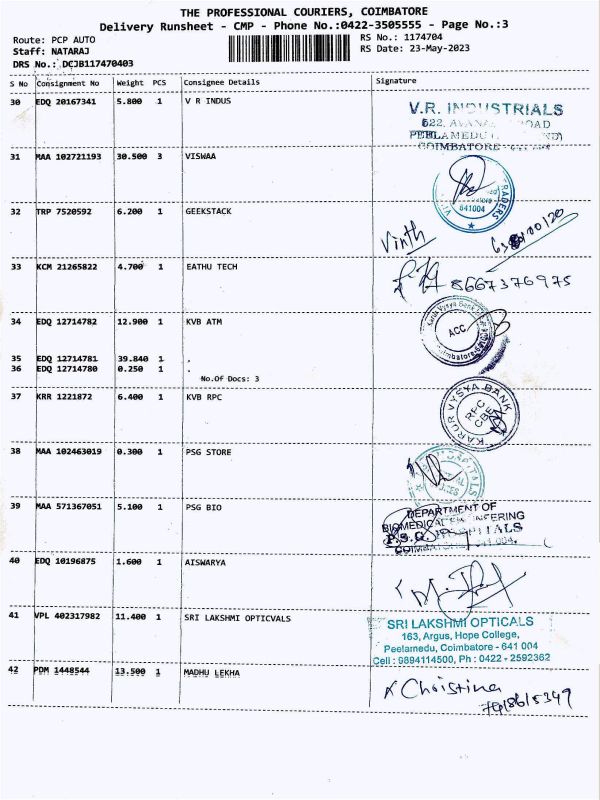 THE PROFESSIONAL COURIERS, COIMBATORE
Delivery Runsheet - CMP - Phone No.:0422-3505555 - Page No.:3
Route: PCP AUTO RS No.: 1174704
Staff: NATARAJ RS Date: 23-May-2023
DRS No.: DCJB117470403
S No Consignment No Weight PCS Consignee Details Signature
30 EDQ 20167341 5.800 1 V R INDUS
V.R. INDUSTRIALS
622,
PEELAMEDU
COIMBATORE
31 MAA 102721193 30.500 3 VISWAA
TRADERS
641004
32 TRP 7520592 6.200 1 GEEKSTACK
Vinth
33 KCM 21265822 4.700 1 EATHU TECH
8667376975
34 EDQ 12714782 12.900 1 KVB ATM
Karur Vysya Bank
ACC
Coimbatore
35 EDQ 12714781 39.840 1 .
36 EDQ 12714780 0.250 1 .
No.Of Docs: 3
37 KRR 1221872 6.400 1 KVB RPC
KARUR VYSYA BANK
38 MAA 102463019 0.300 1 PSG STORE
39 MAA 571367051 5.100 1 PSG BIO
DEPARTMENT OF
BIOMEDICAL ENGINEERING
P.S.G. HOSPITALS
40 EDQ 10196875 1.600 1 AISWARYA
41 VPL 402317982 11.400 1 SRI LAKSHMI OPTICVALS
SRI LAKSHMI OPTICALS
163, Argus, Hope College,
Peelamedu, Coimbatore - 641 004
Cell : 9894114500, Ph : 0422 - 2592362
42 PDM 1448544 13.500 1 MADHU LEKHA
Christina